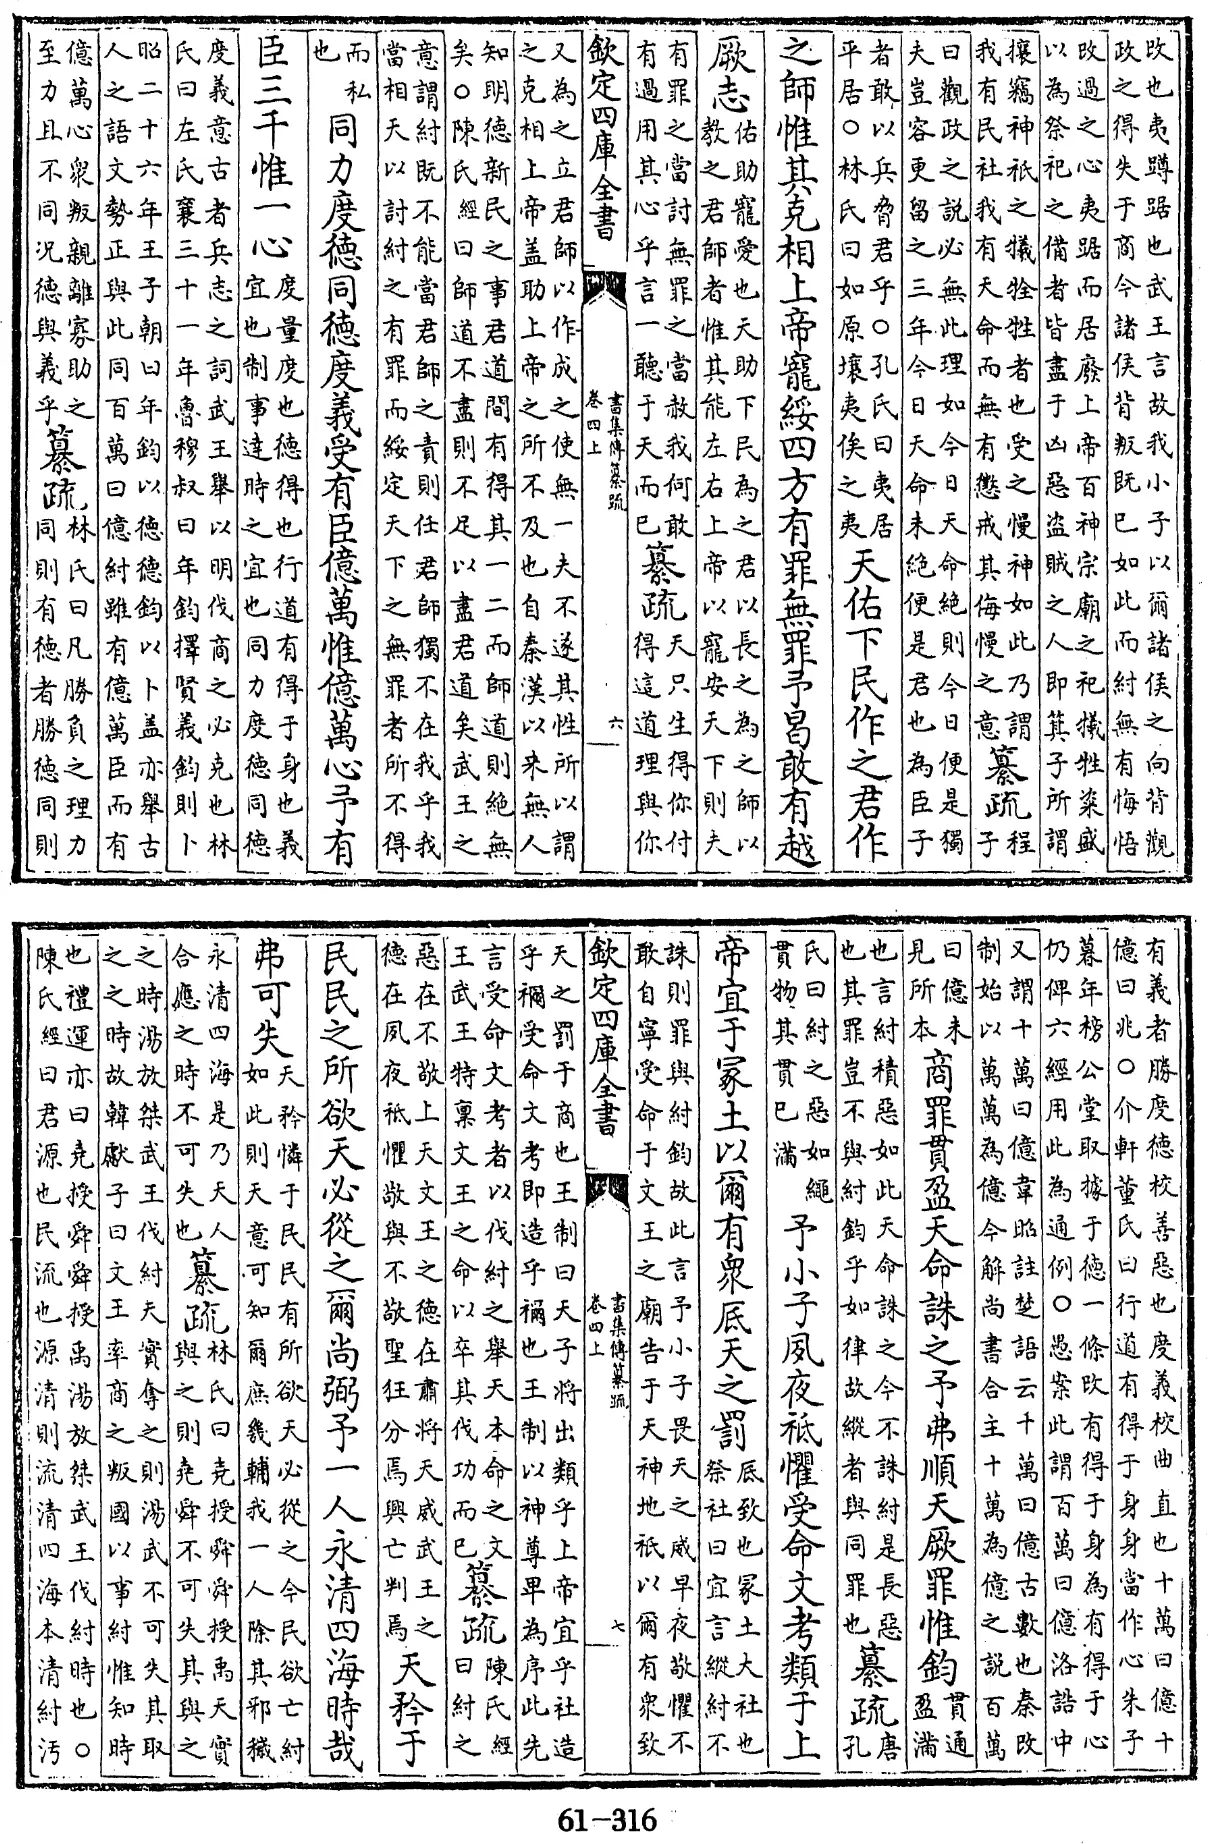 改也夷蹲踞也武王言故我小子以爾諸侯之向背觀
政之得失于商今諸侯背叛既已如此而紂無有悔悟
改過之心夷踞而居廢上帝百神宗廟之祀犧牲粢盛
以為祭祀之備者皆盡于凶惡盜賊之人即箕子所謂
攘竊神祇之犧牷牲者也受之慢神如此乃謂
我有民社我有天命而無有懲戒其侮慢之意纂疏程
子
曰觀政之說必無此理如今日天命絶則今日便是獨
夫豈容更留之三年今日天命未絶便是君也為臣子
者敢以兵脅君乎○孔氏曰夷居
平居○林氏曰如原壤夷俟之夷天佑下民作之君作
之師惟其克相上帝寵綏四方有罪無罪予曷敢有越
厥志佑助寵愛也天助下民為之君以長之為之師以
教之君師者惟其能左右上帝以寵安天下則夫
有罪之當討無罪之當赦我何敢
有過用其心乎言一聽于天而已纂疏天只生得你付
得這道理與你
欽定四庫全書 書集傳纂疏 卷四上 六
又為之立君師以作成之使無一夫不遂其性所以謂
之克相上帝盖助上帝之所不及也自秦漢以来無人
知明德新民之事君道間有得其一二而師道則絶無
矣○陳氏經曰師道不盡則不足以盡君道矣武王之
意謂紂既不能當君師之責則任君師獨不在我乎我
當相天以討紂之有罪而綏定天下之無罪者所不得
而私
也同力度德同德度義受有臣億萬惟億萬心予有
臣三千惟一心度量度也德得也行道有得于身也義
宜也制事逹時之宜也同力度德同德
度義意古者兵志之詞武王舉以明伐商之必克也林
氏曰左氏襄三十一年魯穆叔曰年鈞擇賢義鈞則卜
昭二十六年王子朝曰年鈞以德德鈞以卜盖亦舉古
人之語文勢正與此同百萬曰億紂雖有億萬臣而有
億萬心衆叛親離寡助之
至力且不同况德與義乎纂疏林氏曰凡勝負之理力
同則有德者勝德同則
有義者勝度德校善惡也度義校曲直也十萬曰億十
億曰兆○介軒董氏曰行道有得于身身當作心朱子
暮年榜公堂取據于德一條改有得于身為有得于心
仍俾六經用此為通例○愚案此謂百萬曰億洛誥中
又謂十萬曰億韋昭註楚語云千萬曰億古數也秦改
制始以萬萬為億今解尚書合主十萬為億之說百萬
曰億未
見所本商罪貫盈天命誅之予弗順天厥罪惟鈞貫通
盈滿
也言紂積惡如此天命誅之今不誅紂是長惡
也其罪豈不與紂鈞乎如律故縱者與同罪也纂疏唐
孔
氏曰紂之惡如繩
貫物其貫已滿予小子夙夜祗懼受命文考類于上
帝宜于冢土以爾有衆厎天之罰厎致也冢土大社也
祭社曰宜言縱紂不
誅則罪與紂鈞故此言予小子畏天之威早夜敬懼不
敢自寧受命于文王之廟告于天神地祇以爾有衆致
欽定四庫全書 書集傳纂疏 卷四上 七
天之罰于商也王制曰天子將出類乎上帝宜乎社造
乎禰受命文考即造乎禰也王制以神尊卑為序此先
言受命文考者以伐紂之舉天本命之文
王武王特禀文王之命以卒其伐功而已纂疏陳氏經
曰紂之
惡在不敬上天文王之德在肅將天威武王之
德在夙夜祗懼敬與不敬聖狂分焉興亡判焉天矜于
民民之所欲天必從之爾尚弼予一人永清四海時哉
弗可失天矜憐于民民有所欲天必從之今民欲亡紂
如此則天意可知爾庶幾輔我一人除其邪穢
永清四海是乃天人
合應之時不可失也纂疏林氏曰堯授舜舜授禹天實
與之則堯舜不可失其與之
之時湯放桀武王伐紂夫實奪之則湯武不可失其取
之之時故韓獻子曰文王率商之叛國以事紂惟知時
也禮運亦曰堯授舜舜授禹湯放桀武王伐紂時也○
陳氏經曰君源也民流也源清則流清四海本清紂污
61-316